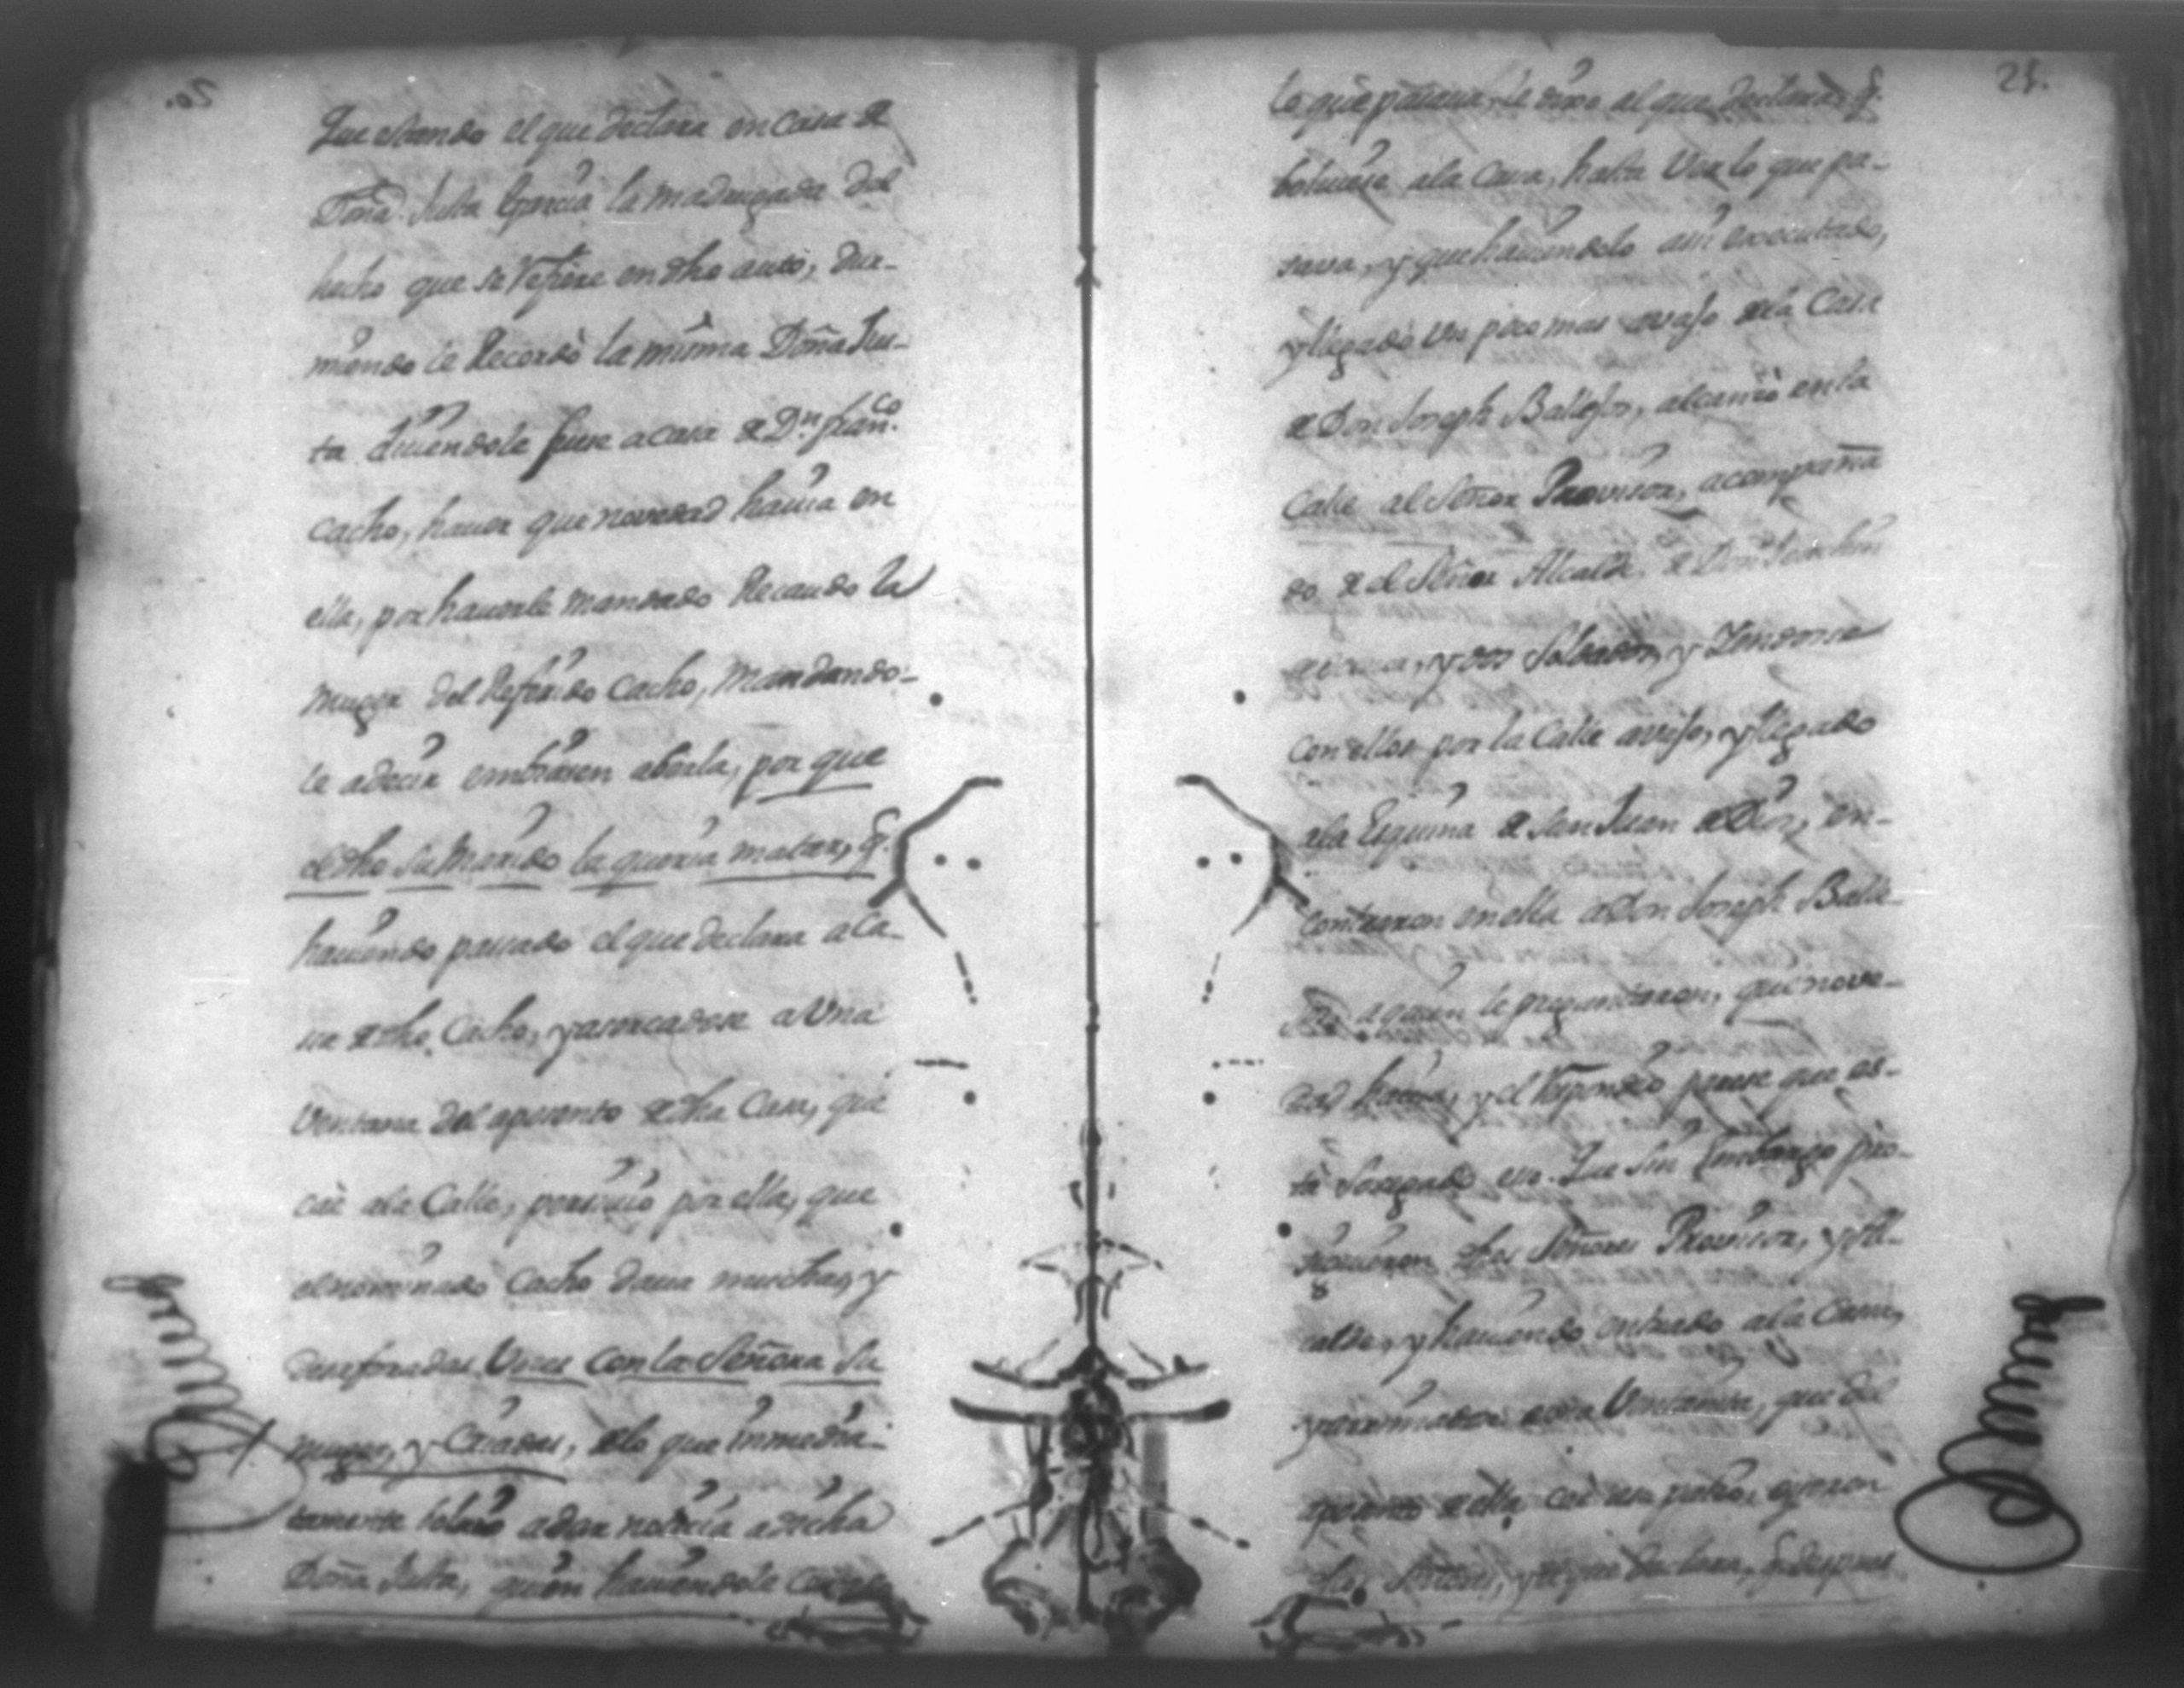 Que estando el que declara en casa de
Doña Justa Garcia la madrugada del
hecho que se refiere en dho auto, dur-
miendo le Recordò la misma Doña Jus-
ta diciendole fuese a casa de Dn. Franco.
Cacho, haver que novedad havia en
ella, por haverle mandado Recaudo la
muger del Referido Cacho, mandando-
le a decir embiasen aberla, por que
el dho su Marido la queria matar, q.
haviendo passado el que declara a Ca-
sa de dho Cacho, y asercadose a Una
Ventana del aposento de dha Casa, que
cae ala Calle, persivio por ella, que
el nominado Cacho dava muchas, y
desaforadas Vozes con la Señora su
muger, y Criadas, de lo que inmedia-
tamente bolvio a dar noticia a dicha
Doña Justa, quien haviendole
20.
21.
lo que passava, le dixo al que declara, q.
bolviese ala Casa, hasta Ver lo que pa-
sava, y que haviendolo asi executado,
y llegado Un poco mas avajo de la Casa
de Don Joseph Ballejos, alcanzò en la
Calle al Señor Provisor, acompaña
do de el Señor Alcalde de Don Joachin
y dos Soldados, y Yendose
con ellos por la Calle avajo, y llegado
ala Esquina de San Juan de Dios, en-
contraron en ella a Don Joseph Balle-
a quien le preguntaron, que nove-
dad havia, y el Respondio parese que es-
ta sosegado eso. Que sin Embargo pro-
siguieron dhos Señores Provisor, y Al-
calde, y haviendo entrado ala Casa,
Ventana, que del
aposento de ella cae un patio, oyeron
dhos Señores, y el que declara, q. despues